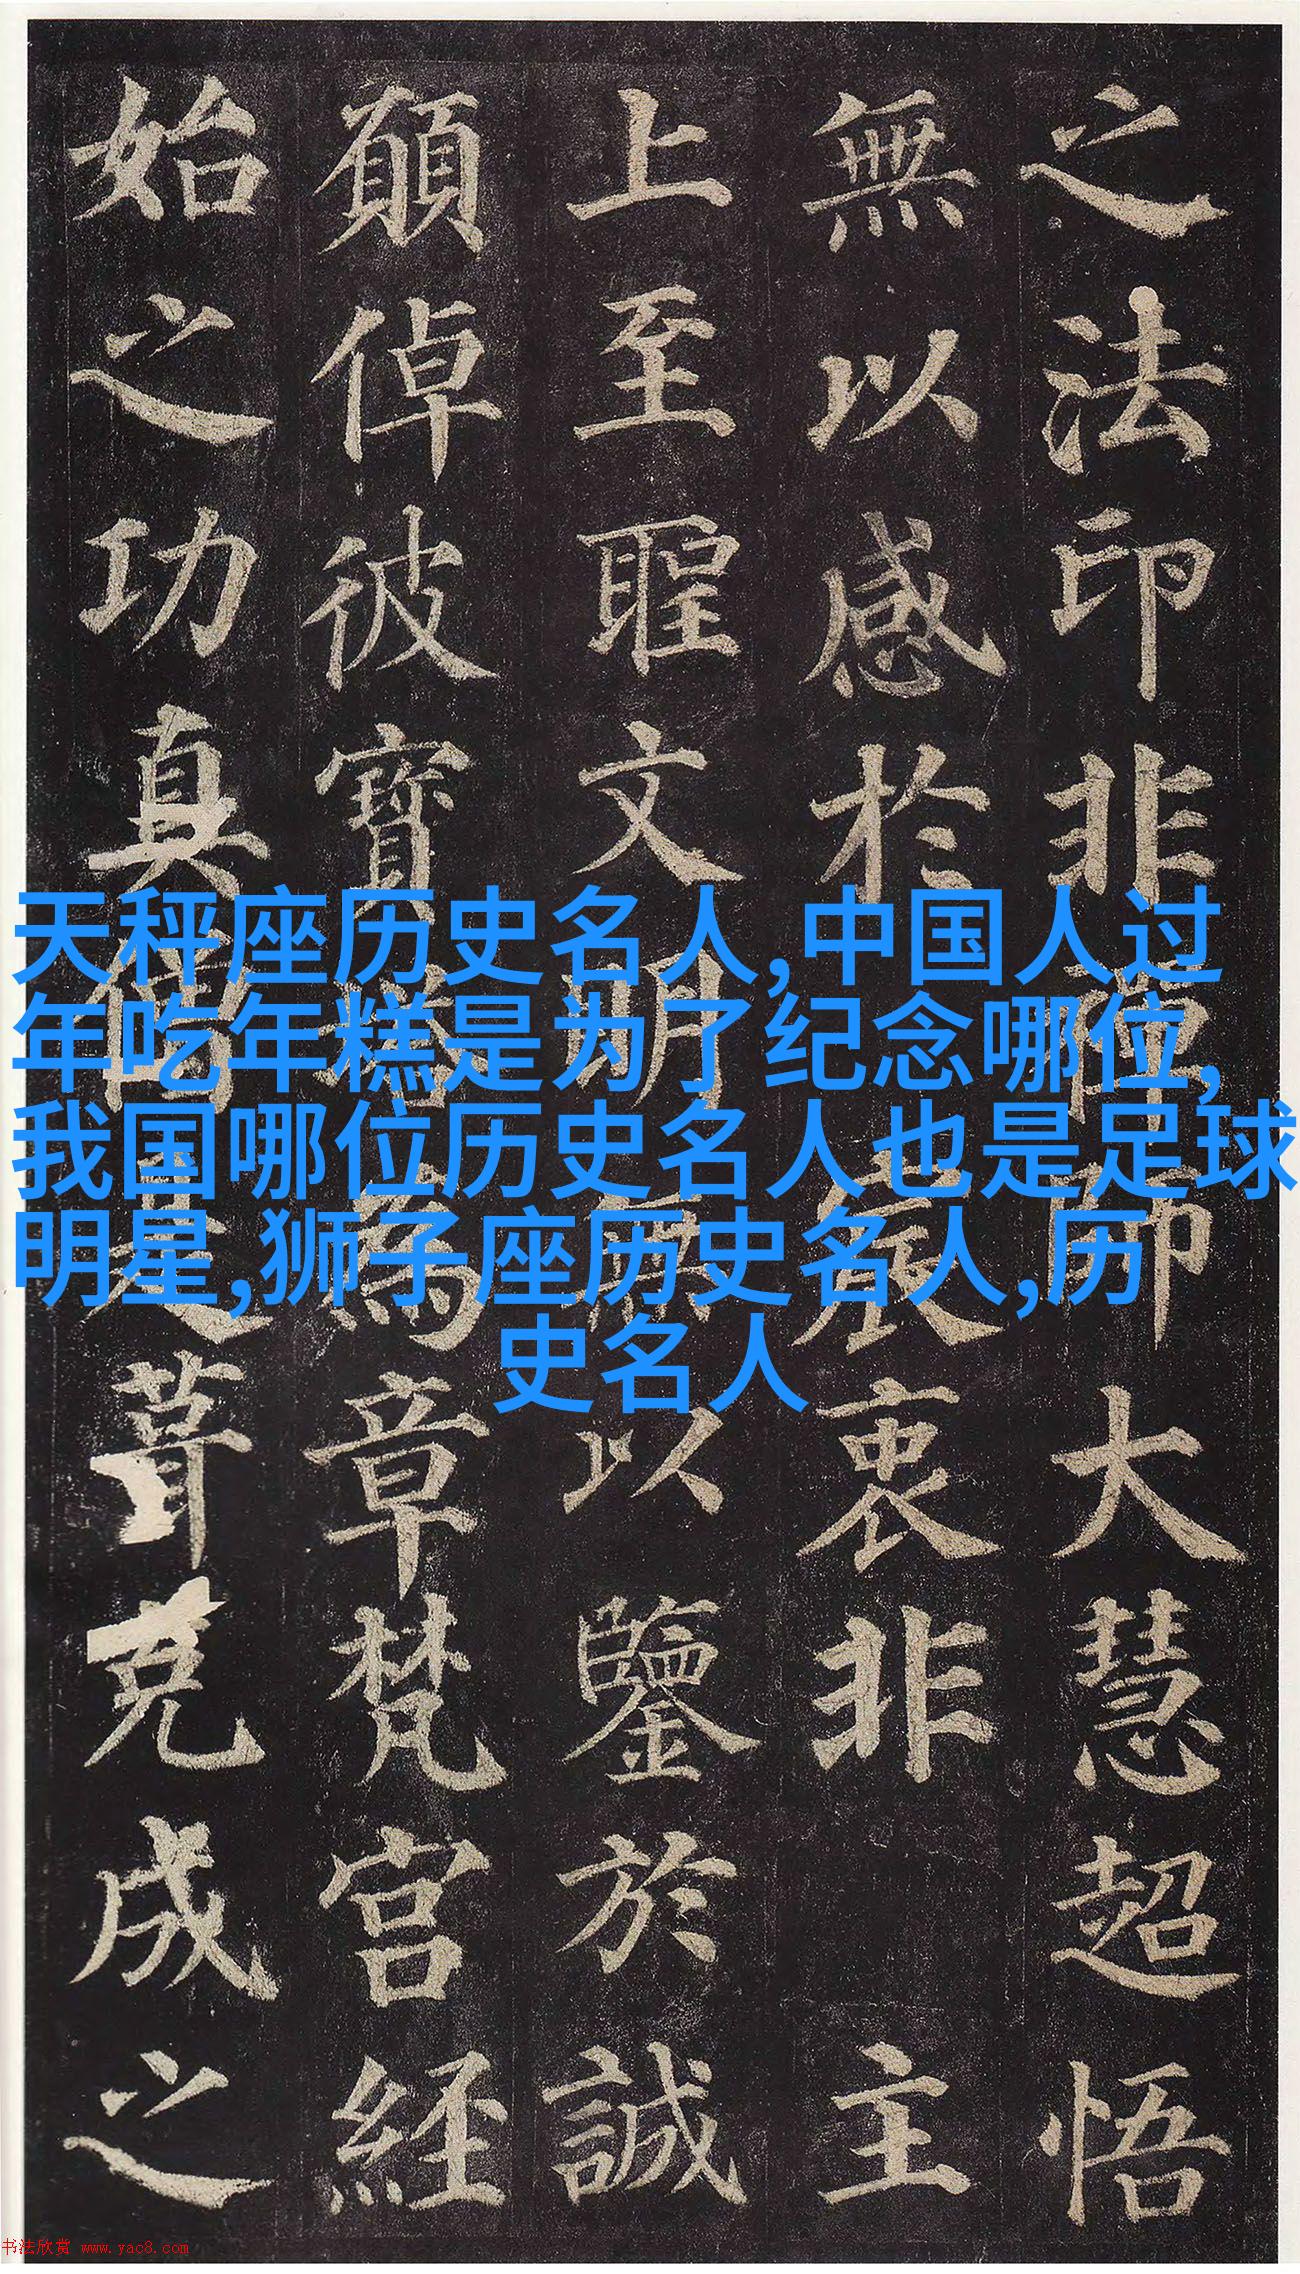 之法印非禪師大慧超悟
無以感於宸衷非主
上至聖文明無以鑒於誠
願倬彼寶塔為章梵宮經
始之功真僧是葺克成之
天秤座历史名人,中国人过
年吃年糕是为了纪念哪位,
我国哪位历史名人也是足球
明星,狮子座历史名人,历
史名人
书法欣赏 www.yac8.com